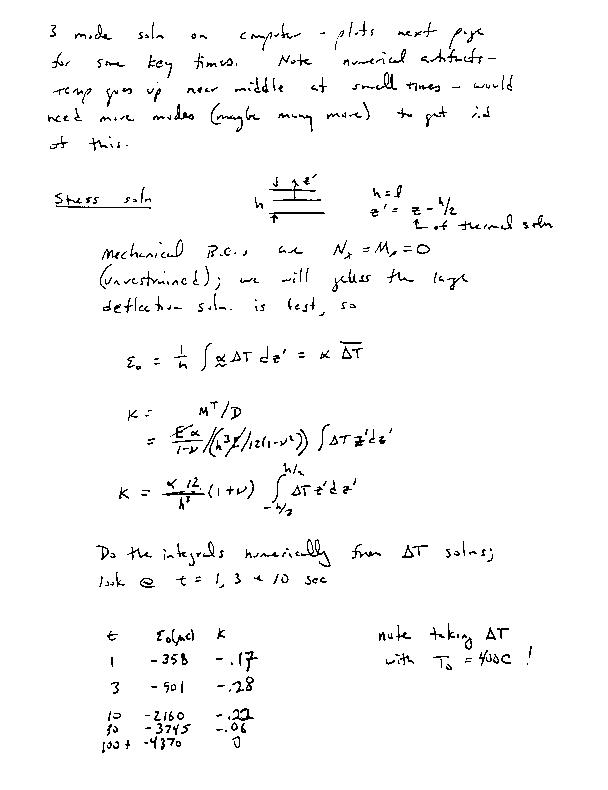 3 mode soln on computer - plots next page
for some key times. Note numerical artifacts -
temp goes up near middle at small times - would
need more modes (maybe many more) to get rid
of this.
Stress soln
h z' h = l
z' = z - h/2
of thermal soln
Mechanical B.C.s are Nx = Mx = 0
(unrestrained); we will guess the large
deflection soln. is best, so
ε₀ = 1/h ∫ α ΔT dz' = α ΔT
K = M^T/D
= Eα/1-ν /(h³E/12(1-ν²)) ∫ΔT z'dz'
K = α 12/h³ (1+ν) ∫ ΔT z'dz' h/2 -h/2
Do the integrals numerically from ΔT solns;
look @ t = 1, 3 & 10 sec
t ε₀(με) K note taking ΔT
1 -358 -.17 with T₀ = 400C !
3 -901 -.28
10 -2160 -.22
30 -3745 -.06
100+ -4370 0